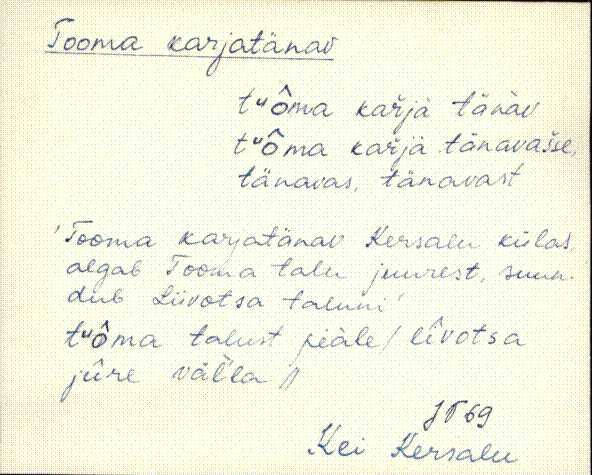 Tooma karjatänav
tᵘôma kaŕjà tänàv
tᵘôma kaŕjà tänavasse,
tänavas, tänavast
'Tooma karjatänav Kersalu külas
algab Tooma talu juurest, suun-
dub Liivotsa taluni'
tᵘôma talust piàle / lîvotsa
jûre väl̀la //
JT 69
Kei Kersalu